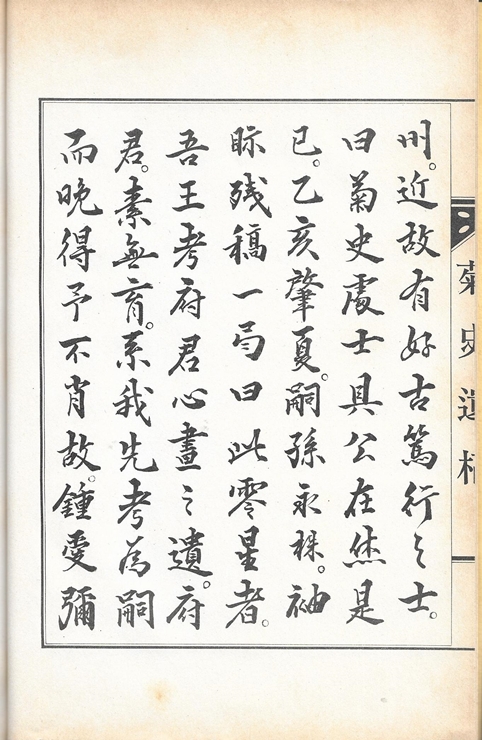 菊史遺
州。近故有好古篤行之士。
曰菊史處士具公在是
已。乙亥肇夏。嗣孫永株。袖
眎殘稿一曰此零星者。
吾王考府君心畫之遺。府
君。素無育。系我先考為嗣
而晚得予不肖故。鍾愛彌